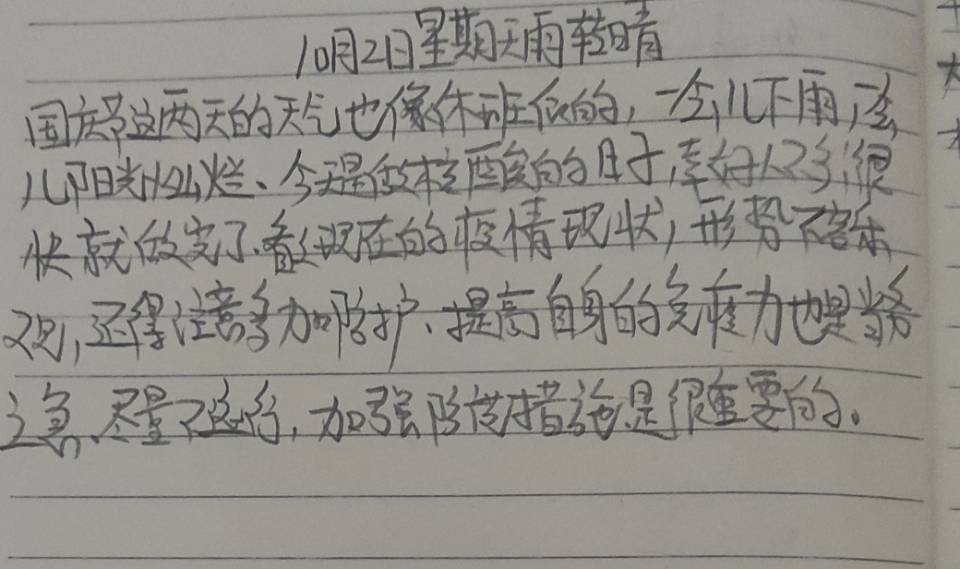 10月2日星期天雨转晴
国庆节这两天的天气也像休班似的,一会儿下雨,一会
儿阳光灿烂、今天是做核酸的日子,幸好人不多,很
快就做完了、看现在的疫情现状,形势不容乐
观,还得注意多加防护、提高自身的免疫力也是当务
之急、尽量不远行,加强防疫措施是很重要的。